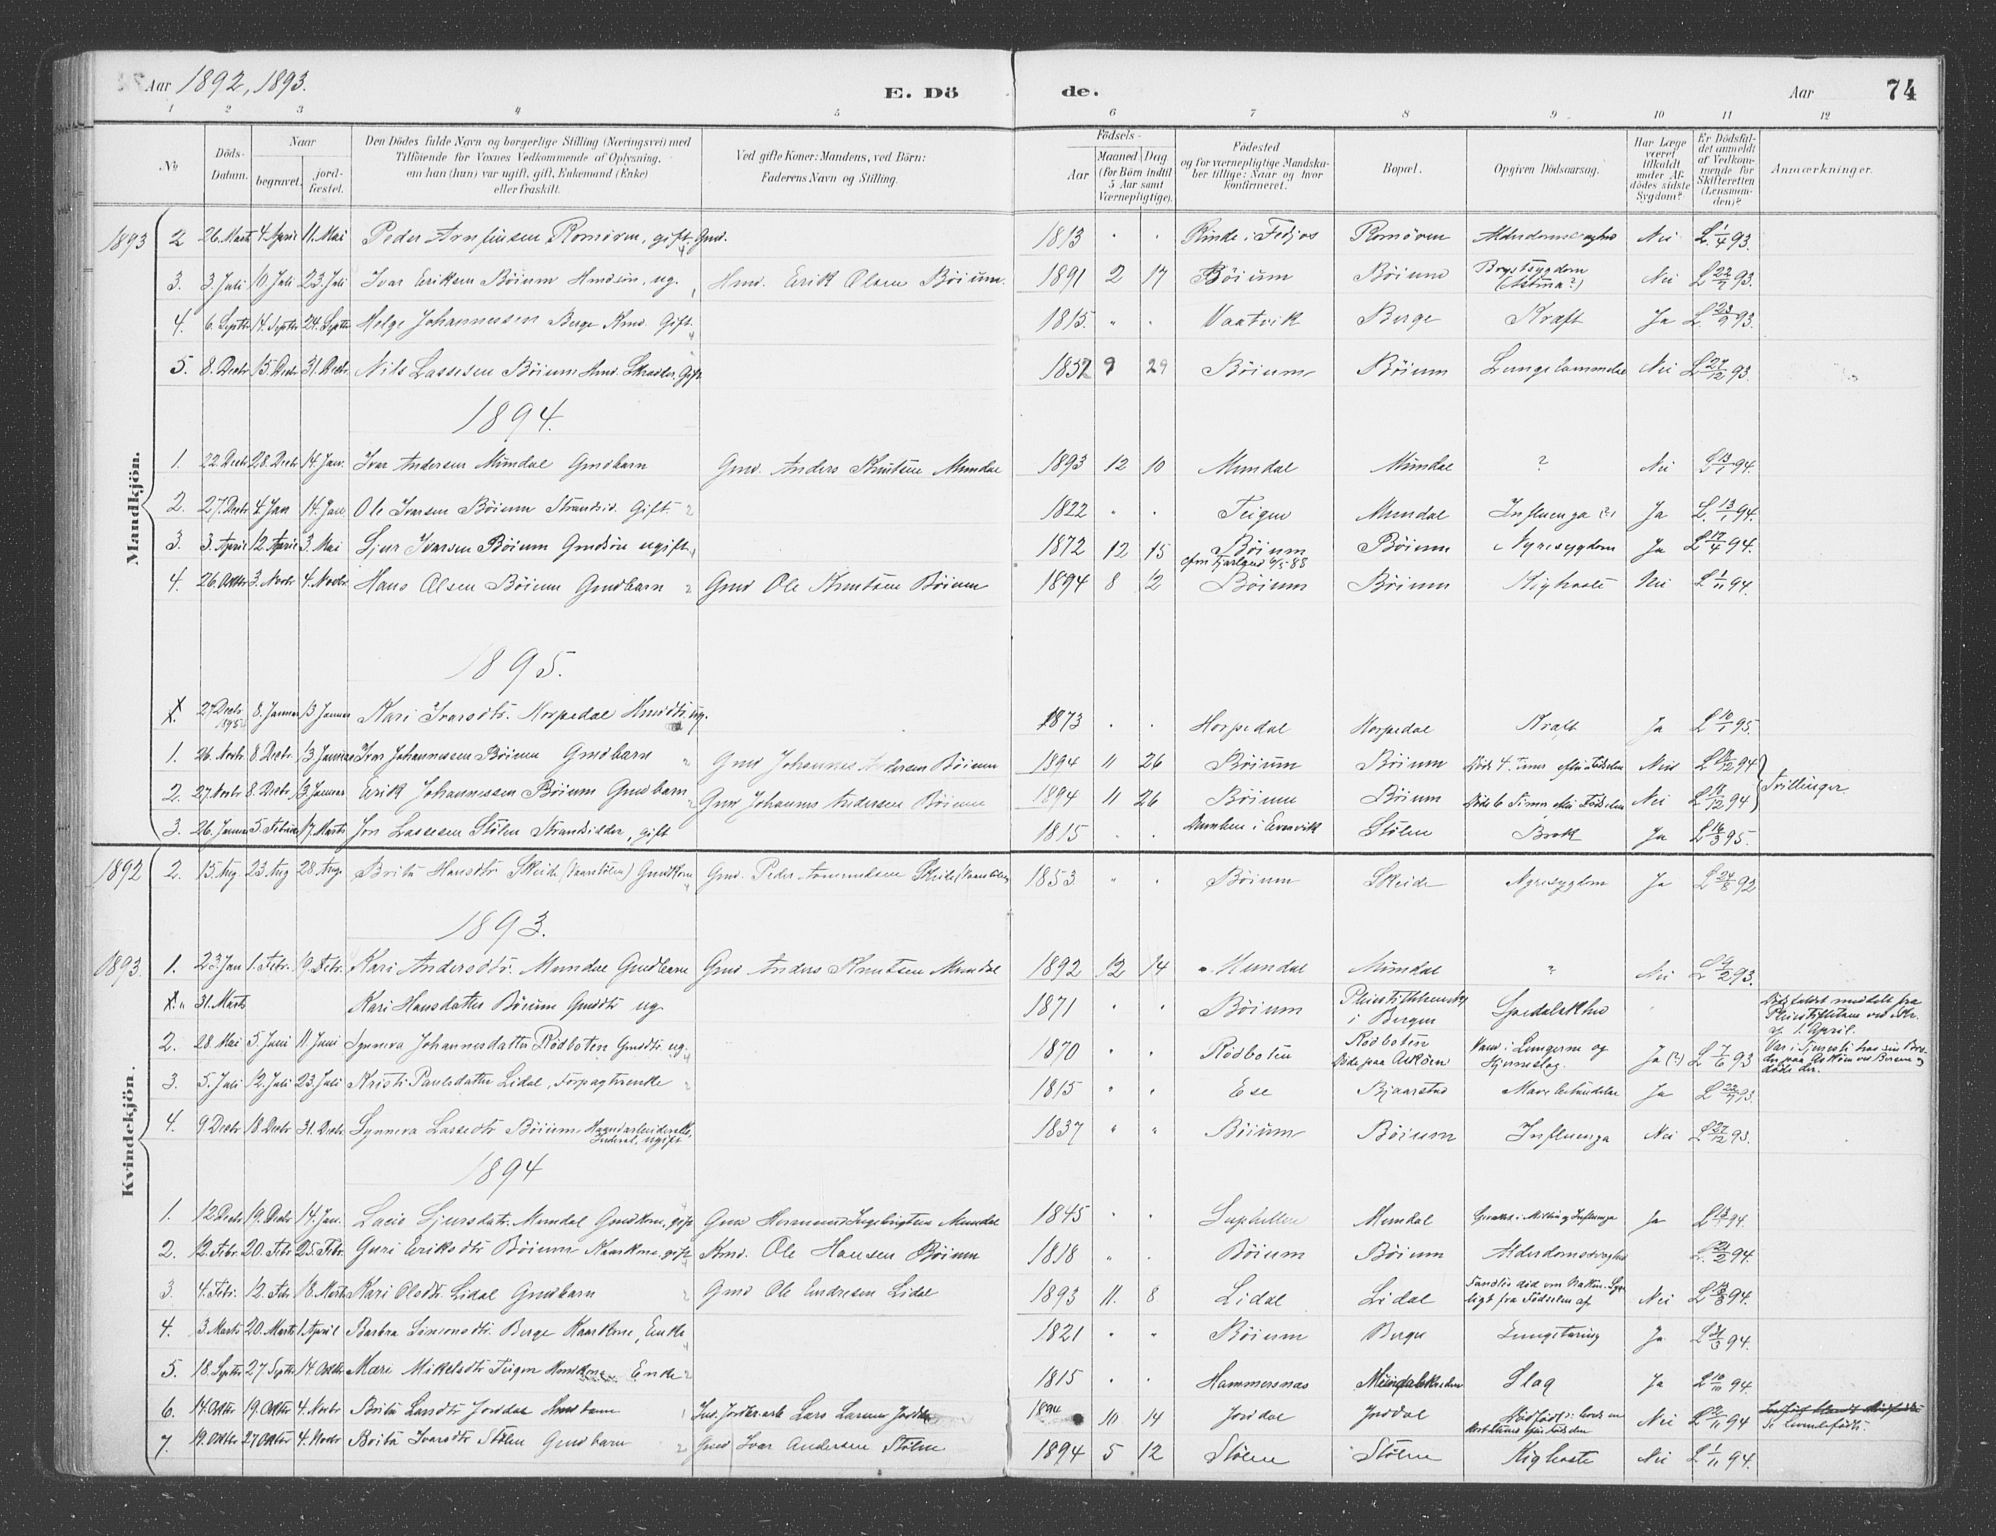 Aar 1892, 1893.
E. Dö
de.
Aar
74
1 2 3 4 5 6 7 8 9 10 11 12
No
Döds-Datum.
Naar
begravet.
jord-fæstet.
Den Dödes fulde Navn og borgerlige Stilling (Næringsvei) med
Tilföiende for Voxnes Vedkommende af Oplysning,
om han (hun) var ugift, gift, Enkemand (Enke)
eller fraskilt.
Ved gifte Koner: Mandens, ved Börn:
Faderens Navn og Stilling.
Födsels-
Aar
Maaned
Dag
(for Börn indtil
5 Aar samt
Værnepligtige).
Födested
og for værnepligtige Mandska-
ber tillige: Naar og hvor
konfirmeret.
Bopæl.
Opgiven Dödsaarsag.
Har Læge
været
tilkaldt
under Af-
dödes sidste
Sygdom?
Er Dödsfal-
det anmeldt
af Vedkom-
mende for
Skifteretten
(Lensman-
den)?
Anmærkninger.
Mandkjön.
1893 2 26. Marts 4. April 11. Mai Peder Romören, gift. Gmd. 1813 " " Rinde i Romören Nei L. 1/4 93.
3. 3. Juli 10. Juli 23. Juli Ivar Eriksen Böium Hmdsön, ug. Hmd. Erik Olsen Böium. 1891 2 17 Böium Böium Brystsygdom (Astma?) Nei L 22/7 93.
4. 6. Septbr 14. Septbr 24. Septbr Helge Johannessen Berge Kmd. Gift. 1815. " " Vaatvik Berge Kræft Ja L. 23/9 93.
5. 8. Decbr 15. Decbr 31. Decbr Nils Lassesen Böium Hmd. Skrædder. Gift. 1852 9 29 Böium Böium Lungelammelse Nei L 27/12 93.
1894.
1. 22. Decbr 28. Decbr 14. Jan. Ivar Andersen Mundal Gmdbarn Gmd. Anders Knutsen Mundal 1893 12 10 Mundal Mundal ? Nei L 13/1 94.
2. 27. Decbr 4. Jan 14. Jan Ole Ivarsen Böium Strandsid. Gift. 1822 " " Teigen Mundal Influenza (?) Ja L. 13/1 94.
3. 3. April 12. April 3. Mai Sjur Ivarsen Böium Gmdsön ugift. 1872 12 15 Böium Böium Nyresygdom Ja L 17/4 94.
4. 26. Oktbr 3. Novbr 4. Novbr Hans Olsen Böium Gmdbarn Gmd Ole Knutsen Böium 1894 8 12 Böium Böium Kighoste Nei L 1/11 94.
1895.
27 Decbr 8. Januar 13 Januar Kari Ivarsdtr. Horpedal Hmdtr. ug. 1873 " " Horpedal Horpedal Kræft Ja L 10/1 95.
1. 26. Novbr 8. Decbr. 13. Januar Ivar Johannessen Böium Gmdbarn Gmd Johannes Andersen Böium 1894 11 26 Böium Böium Döde 4. Timer efter Födselen Nei 94
2. 27. Novbr 8. Decbr. 13 Januar Erik Johannessen Böium Gmdbarn Gmd Johannes Andersen Böium 1894 11 26 Böium Böium Döde 6 Timer efter Födselen Nei 94
Tvillinger.
3. 26. Januar 5. Februar 17. Marts Jon Lassesen Stölen Strandsidder, gift 1815 " " i Evenvik Stölen Brok Ja L 16/3 95.
Kvindekjön.
1892 2. 15. Aug 23. Aug 28. Aug. Brita Hansdtr Skeide Gmdkone Gmd. Peder Skeide 1853 " " Böium Skeide Nyresygdom Ja L 24/8 92
1893.
1893. 1. 23. Jan 1. Febr. 9. Febr. Kari Andersdtr. Mundal Gmdbarn Gmd Anders Knutsen Mundal 1892 12 14 Mundal Mundal ? Nei 93.
31. Marts Kari Hansdatter Böium Gmddtr ug. 1871 " " Böium Pleiestiftelsen i Bergen Spedalskhed
Dödsfaldet meddelt fra Pleiestiftelsen 1. April.
2. 28. Mai 5. Juni 11. Juni Synneva Johannesdatter Rödboten Gmddtr ug. 1870 " " Rödboten Rödboten Döde paa Asköen Vand i Lungerne og Hjerneslag. Ja (?) L 7/6 93
Var i Tjeneste hos sin Bro-
der paa Asköen ved Bergen og
döde der.
3. 5. Juli 12. Juli 23. Juli Kristi Paulsdatter Lidal, Forpagterenke 1815 " " Ese Bjaarstad Mavebetændelse Ja 93.
4. 9 Decbr 18. Decbr 31. Decbr Synneva Lassedtr Böium ugift 1837 " " Böium Böium Influenza Nei L 27/12 93.
1894
1. 12. Decbr 19. Decbr 14. Jan. Sjursdatr. Mundal Gmdkone, gift Gmd Hermund Ingebrigtsen Mundal 1845 " " Suphellen Mundal Influenza Ja L 13/1 94.
2. 12. Febr. 20. Febr 25. Febr. Guri Eriksdtr Böium Kaarkone, gift Kmd. Ole Hansen Böium 1818 " " Böium Böium Alderdomssvaghed L. 21/2 94.
3. 4. Febr. 12. Febr 18. Marts Kari Olsdtr. Lidal Gmdbarn Gmd Ole Endresen Lidal 1893 11. 8 Lidal Lidal Fandtes död om Natten. Syge-
ligt fra Födselen af Nei 94.
4. 3. Marts 20. Marts 1. April Barbra Simonsdtr. Berge Kaarkone, Enke 1821 " " Böium Berge Ja L 21/3 94.
5. 18. Septbr 27 Septbr 14. Oktbr Mari Mikelsdtr Teigen Enke 1815 " " Hammersnæs Slag Ja L 10/10 94.
6. 14. Oktbr 19. Oktbr 4. Novbr Brita Larsdtr Jordal barn Lars Larsen Jordal 1894 10 14 Jordal Jordal Nei 94
7. 19. Oktbr 27 Oktbr 4. Novbr Brita Ivarsdtr Stölen Gmdbarn Gmd Ivar Andersen Stölen 1894 5 12 Stölen Stölen Kighoste Nei L 1/11 94.